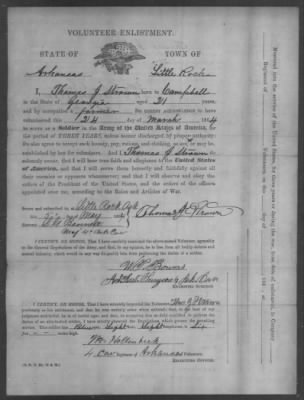 VOLUNTEER ENLISTMENT.
STATE OF TOWN OF
Arkansas Little Rock
I, Thomas J born in Campbell
in the State of Georgia aged 21 years,
and by occupation a farmer Do HEREBY ACKNOWLEDGE to have
volunteered this 24 day of March 1864
to serve as a Soldier in the Army of the United States of America, for
the period of THREE YEARS, unless sooner discharged by proper authority:
Do also agree to accept such bounty, pay, rations, and clothing, as are, or may be,
established by law for volunteers. And I, Thomas J do
solemnly swear, that I will bear true faith and allegiance to the United States
of America, and that I will serve them honestly and faithfully against all
their enemies or opposers whomsoever; and that I will observe and obey
the orders of the President of the United States, and the orders of the officers
appointed over me, according to the Rules and Articles of War.
Sworn and subscribed to, at Little Rock Ark
this day of May 1864
Before
4 Ark Cav
Thomas J
I CERTIFY, ON HONOR, That I have carefully examined the above-named Volunteer, agreeably
to the General Regulations of the Army, and that, in my opinion, he is free from all bodily defects and
mental infirmity, which would in any way disqualify him from performing the duties of a soldier.
4 Ark Cav
EXAMINING SURGEON.
I CERTIFY, ON HONOR, That I have minutely inspected the Volunteer,
previously to his enlistment, and that he was entirely sober when enlisted; that, to the best of my
judgment and belief, he is of lawful age; and that, in accepting him as duly qualified to perform the
duties of an able-bodied soldier, I have strictly observed the Regulations which govern the recruiting
service. This soldier has eyes, Light hair, Light complexion, is Six
feet inches high.
Wm Hollenbeck
4 Cav Regiment of Arkansas Volunteers,
RECRUITING OFFICER.
Mustered into the service of the United States, for three years or during the war, from date of enlistment, in Company
Regiment of Volunteers, on the day of 186 , at